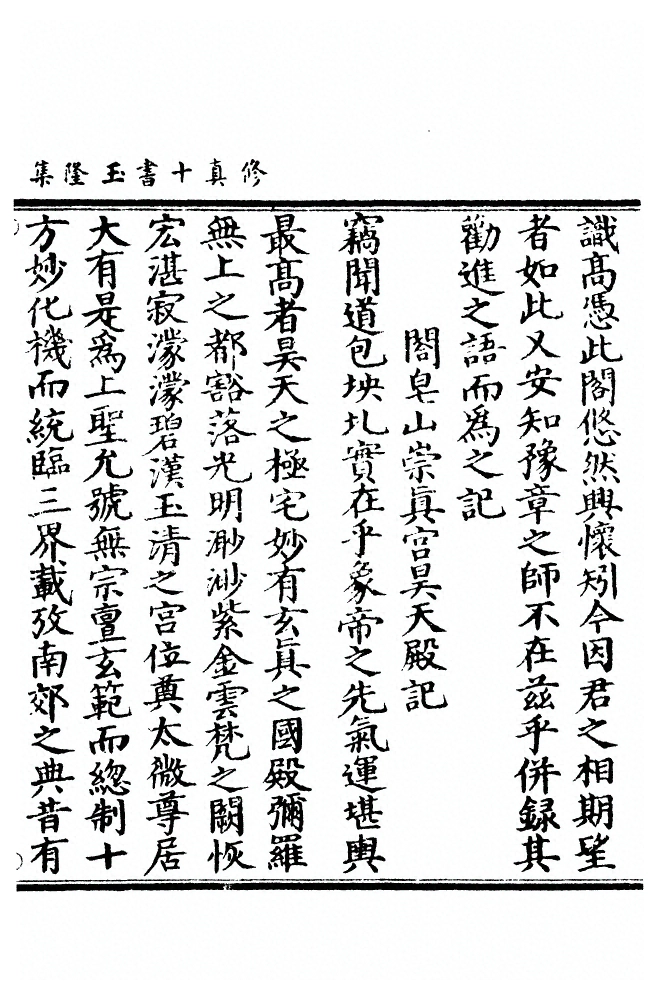 修真十書玉隆集
識高憑此閣悠然興懷矧今因君之相期望
者如此又安知豫章之師不在茲乎併録其
勸進之語而為之記
閤皂山崇眞宫昊天殿記
竊聞道包坱圠實在乎象帝之先氣運堪輿
最高者昊天之極宅妙有玄眞之國殿彌羅
無上之都豁落光明渺渺紫金雲梵之闕恢
宏湛寂濛濛碧漢玉清之宫位奠太微尊居
大有是為上聖允號無宗亶玄範而總制十
方妙化機而統臨三界載攷南郊之典昔有